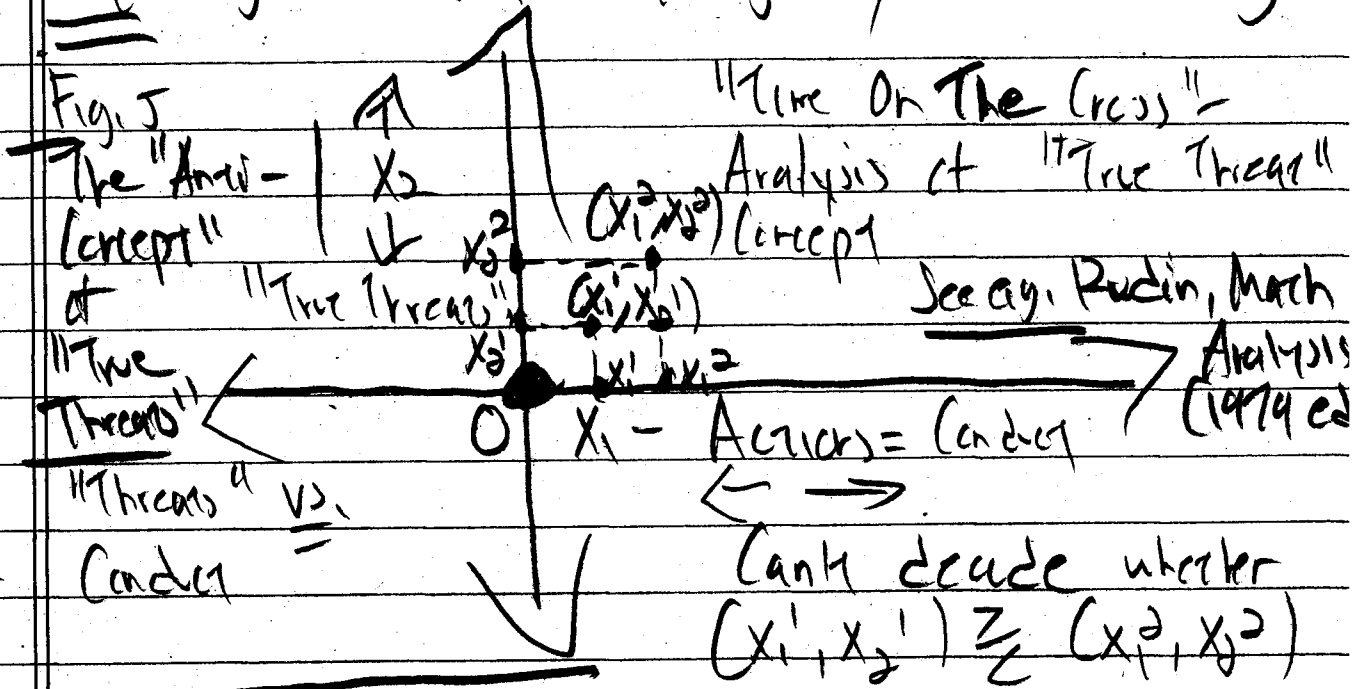 Fig. 5
The "Anti-
Concept"
of
"True
Threats"
"Threats" vs.
Conduct
X₂
"True Threats"
X₂²
X₂¹
(X₁², X₂²)
(X₁¹, X₂¹)
X₁¹ X₁²
O X₁ - Actions = Conduct
"Time On The Cross" -
Analysis of "True Threat"
Concept
See e.g. Rudin, Math
Analysis
(1979 ed
Can't decide whether
(X₁¹, X₂¹) ≥ ≤ (X₁², X₂²)